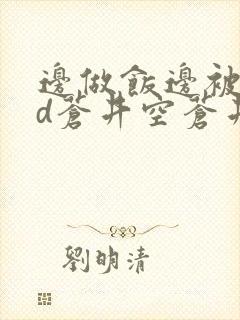 邊做飯邊被
d蒼井空蒼井
劉明清